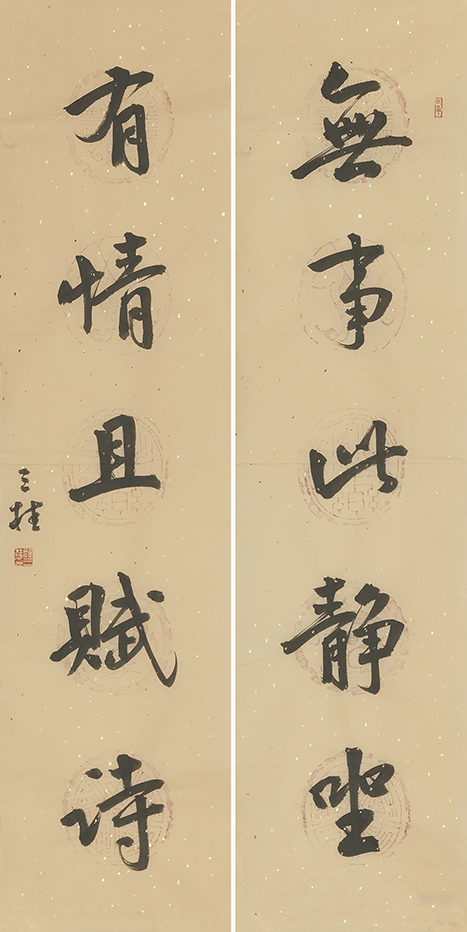 無事此静坐
有情且賦詩
三桂